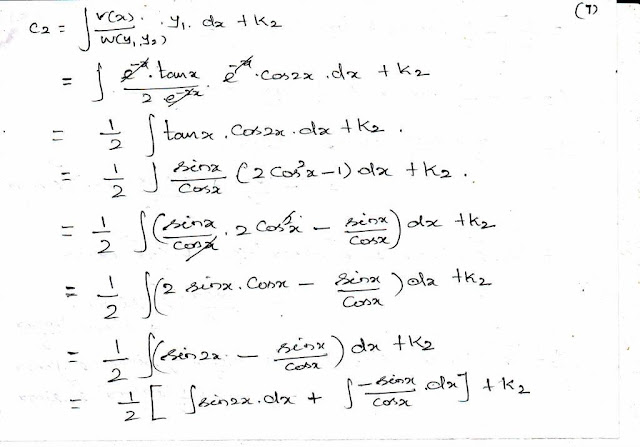 (9)
C₂ = ∫ r(x)/W(y₁, y₂) · y₁ · dx + K₂
= ∫ e⁻ˣ · tanx / 2 e⁻²ˣ · e⁻ˣ · cos2x · dx + K₂
= 1/2 ∫ tanx · cos2x · dx + K₂ .
= 1/2 ∫ sinx/cosx (2 cos²x − 1) dx + K₂ .
= 1/2 ∫ (sinx/cosx · 2 cos²x − sinx/cosx) dx + K₂
= 1/2 ∫ (2 sinx · cosx − sinx/cosx) dx + K₂
= 1/2 ∫ (sin2x − sinx/cosx) dx + K₂
= 1/2 [ ∫ sin2x · dx + ∫ −sinx/cosx · dx ] + K₂